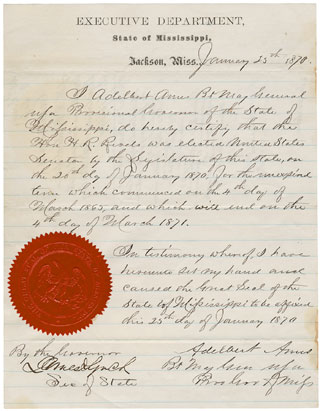 EXECUTIVE DEPARTMENT,
State of Mississippi,
Jackson, Miss., January 25th 1870.
I Adelbert Ames Bt Maj General
U.S.A. Provisional Governor of the State of
Mississippi, do hereby certify that the
Hon H. R. Revels was elected United States
Senator by the Legislature of this State, on
the 20th day of January 1870, for the unexpired
term which commenced on the 4th day of
March 1865, and which will end on the
4th day of March 1871.
In testimony whereof I have
hereunto set my hand and
caused the Great Seal of the
State of Mississippi to be affixed
this 25th day of January 1870
By the Governor
Adelbert Ames
Bt Maj Gen U.S.A.
Sec of State
Pro Gov of Miss